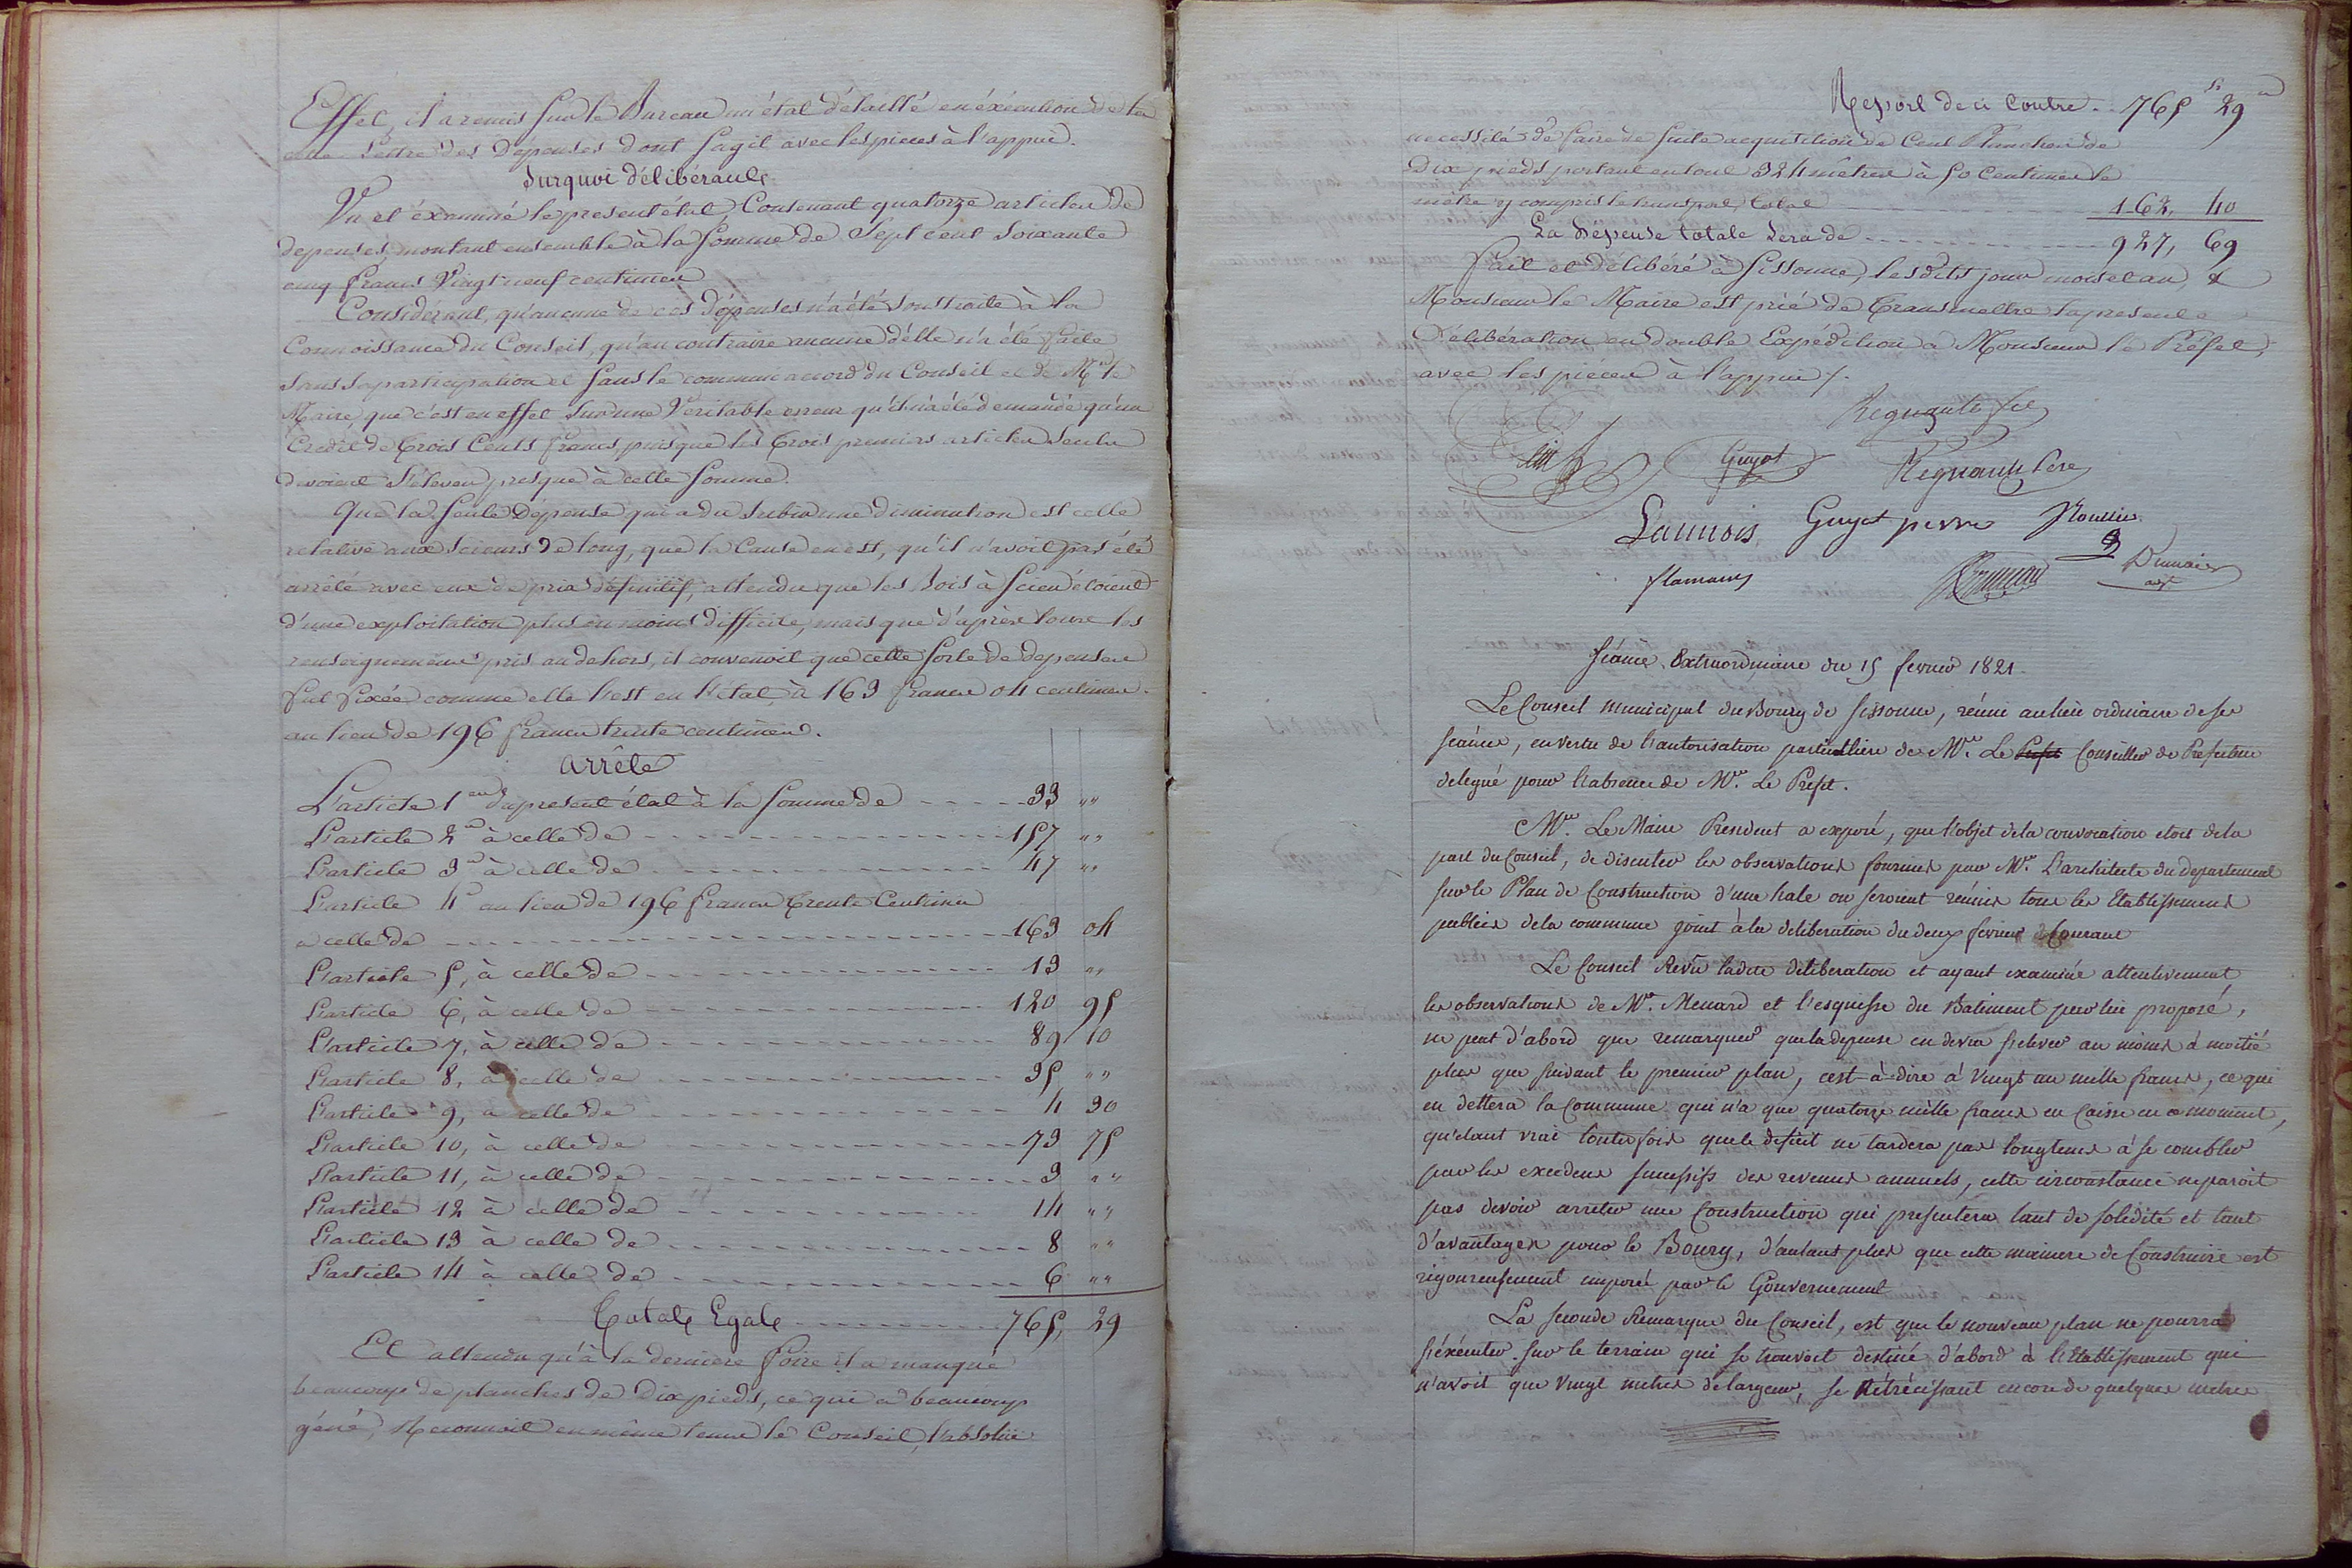 Effet, il a remis sur le Bureau un état détaillé en éxécution de la
Lettre des Dépenses dont s'agit avec les pieces à l'appui.
Surquoi délibérant,
Vu et éxaminé le present état, Contenant quatorze articles de
depenses, montant ensemble à la somme de Sept cent Soixante
cinq francs Vingt neuf centimes
Considérant, qu'aucune de ces dépenses n'a été soustraite à la
Connoissance du Conseil, qu'au contraire aucune d'elle n'a été faite
sans sa participation et sans le commun accord du Conseil et de Mr. le
Maire, que c'est en effet sur une Véritable erreur qu'il n'a été demandé qu'un
Crédit de trois Cents francs, puisque les trois premiers articles seuls
devoient s'élever presque à cette somme.
Que la seule Dépense qui a du subir une diminution est celle
relative aux scieurs de long, que la Cause en est, qu'il n'avoit pas été
arrêté avec eux de prix définitif, attendu que les Bois à scier étoient
d'une exploitation plus ou moins difficile, mais que d'après tous les
renseignemens pris au dehors, il convenoit que cette sorte de depenses
fut fixée comme elle l'est en l'état, à 163 francs 04 centimes
au lieu de 196 francs trente centimes.
Arrête
L'article 1er du present état à la somme de - - - - - 33 ""
L'article 2e à celle de - - - - - 157 ""
L'article 3e à celle de - - - - - 47 ""
L'article 4e au lieu de 196 francs trente Centimes
à celle de - - - - - 163 04
L'article 5, à celle de - - - - - 13 ""
L'article 6, à celle de - - - - - 120 95
L'article 7, à celle de - - - - - 89 10
L'article 8, à celle de - - - - - 35 ""
L'article 9, à celle de - - - - - 4 30
L'article 10, à celle de - - - - - 73 75
L'article 11, à celle de - - - - - 3 ""
L'article 12 à celle de - - - - - 14 ""
L'article 13 à celle de - - - - - 8 ""
L'article 14 à celle de - - - - - 6 ""
Totale Egale - - - - - 765, 29
Et attendu qu'à la derniere foire il a manqué
beaucoup de planches de Dix pieds, ce qui a beaucoup
géné, Reconnoit en même tems le Conseil, l'absolue
Report de ci Contre. 765 fs 29 c
necessité de faire de suite acquisition de Cent Planches de
Dix pieds portant en tout 324 mêtres à 50 Centimes le
mêtre y compris le transport, total - - - - - 162, 40
La Dépense totale sera de - - - - - 927, 69
Fait et délibéré à Sissonne, les dits jour mois et an, &
Monsieur le Maire est prié de transmettre la presente
Délibération en double Expédition à Monsieur le Préfet,
avec les pièces à l'appui /.
Regnault fils
Guyot Regnault Pere
Lannois Guyot pierre
flamain
Séance Extraordinaire du 15 fevrier 1821.
Le Conseil municipal du Bourg de Sissonne, réuni au lieu ordinaire de ses
séances, en vertu de l'autorisation particulliere de Mr. Le Prefet Conseiller de Prefecture
delegué pour l'absence de Mr. Le Prefet.
Mr. Le Maire President a exposé, que l'objet de la convocation etoit de la
part du Conseil, de discuter les observations fournies par Mr. L'architecte du departement
sur le Plan de Construction d'une hale ou seroient réunis tous les Etablissemens
publics de la commune joint à la deliberation du deux fevrier Courant
Le Conseil Revu ladite deliberation et ayant examinée attentivement
les observations de Mr. Menard et l'esquisse du Batiment par lui proposé,
ne peut d'abord que remarquer que la depense en devra s'elever au moins à moitié
plus que suivant le premier plan, c'est-à-dire à vingt un mille francs, ce qui
en dettera la Commune qui n'a que quatorze mille francs en Caisse en ce moment,
qu'etant vrai toutes fois que le deficit ne tardera pas longtems à se combler
par les excedens successifs des revenus annuels, cette circonstance ne paroit
pas devoir arreter une Construction qui presentera tant de solidité et tant
d'avantages pour le Bourg, d'autant plus que cette maniere de Construire est
rigoureusement imposée par le Gouvernement
La seconde Remarque du Conseil, est que le nouveau plan ne pourra
s'éxécuter sur le terrain qui se trouvoit destiné d'abord à l'Etablissement qui
n'avoit que vingt metres de largeur, se Rétrécissant encore de quelques metres